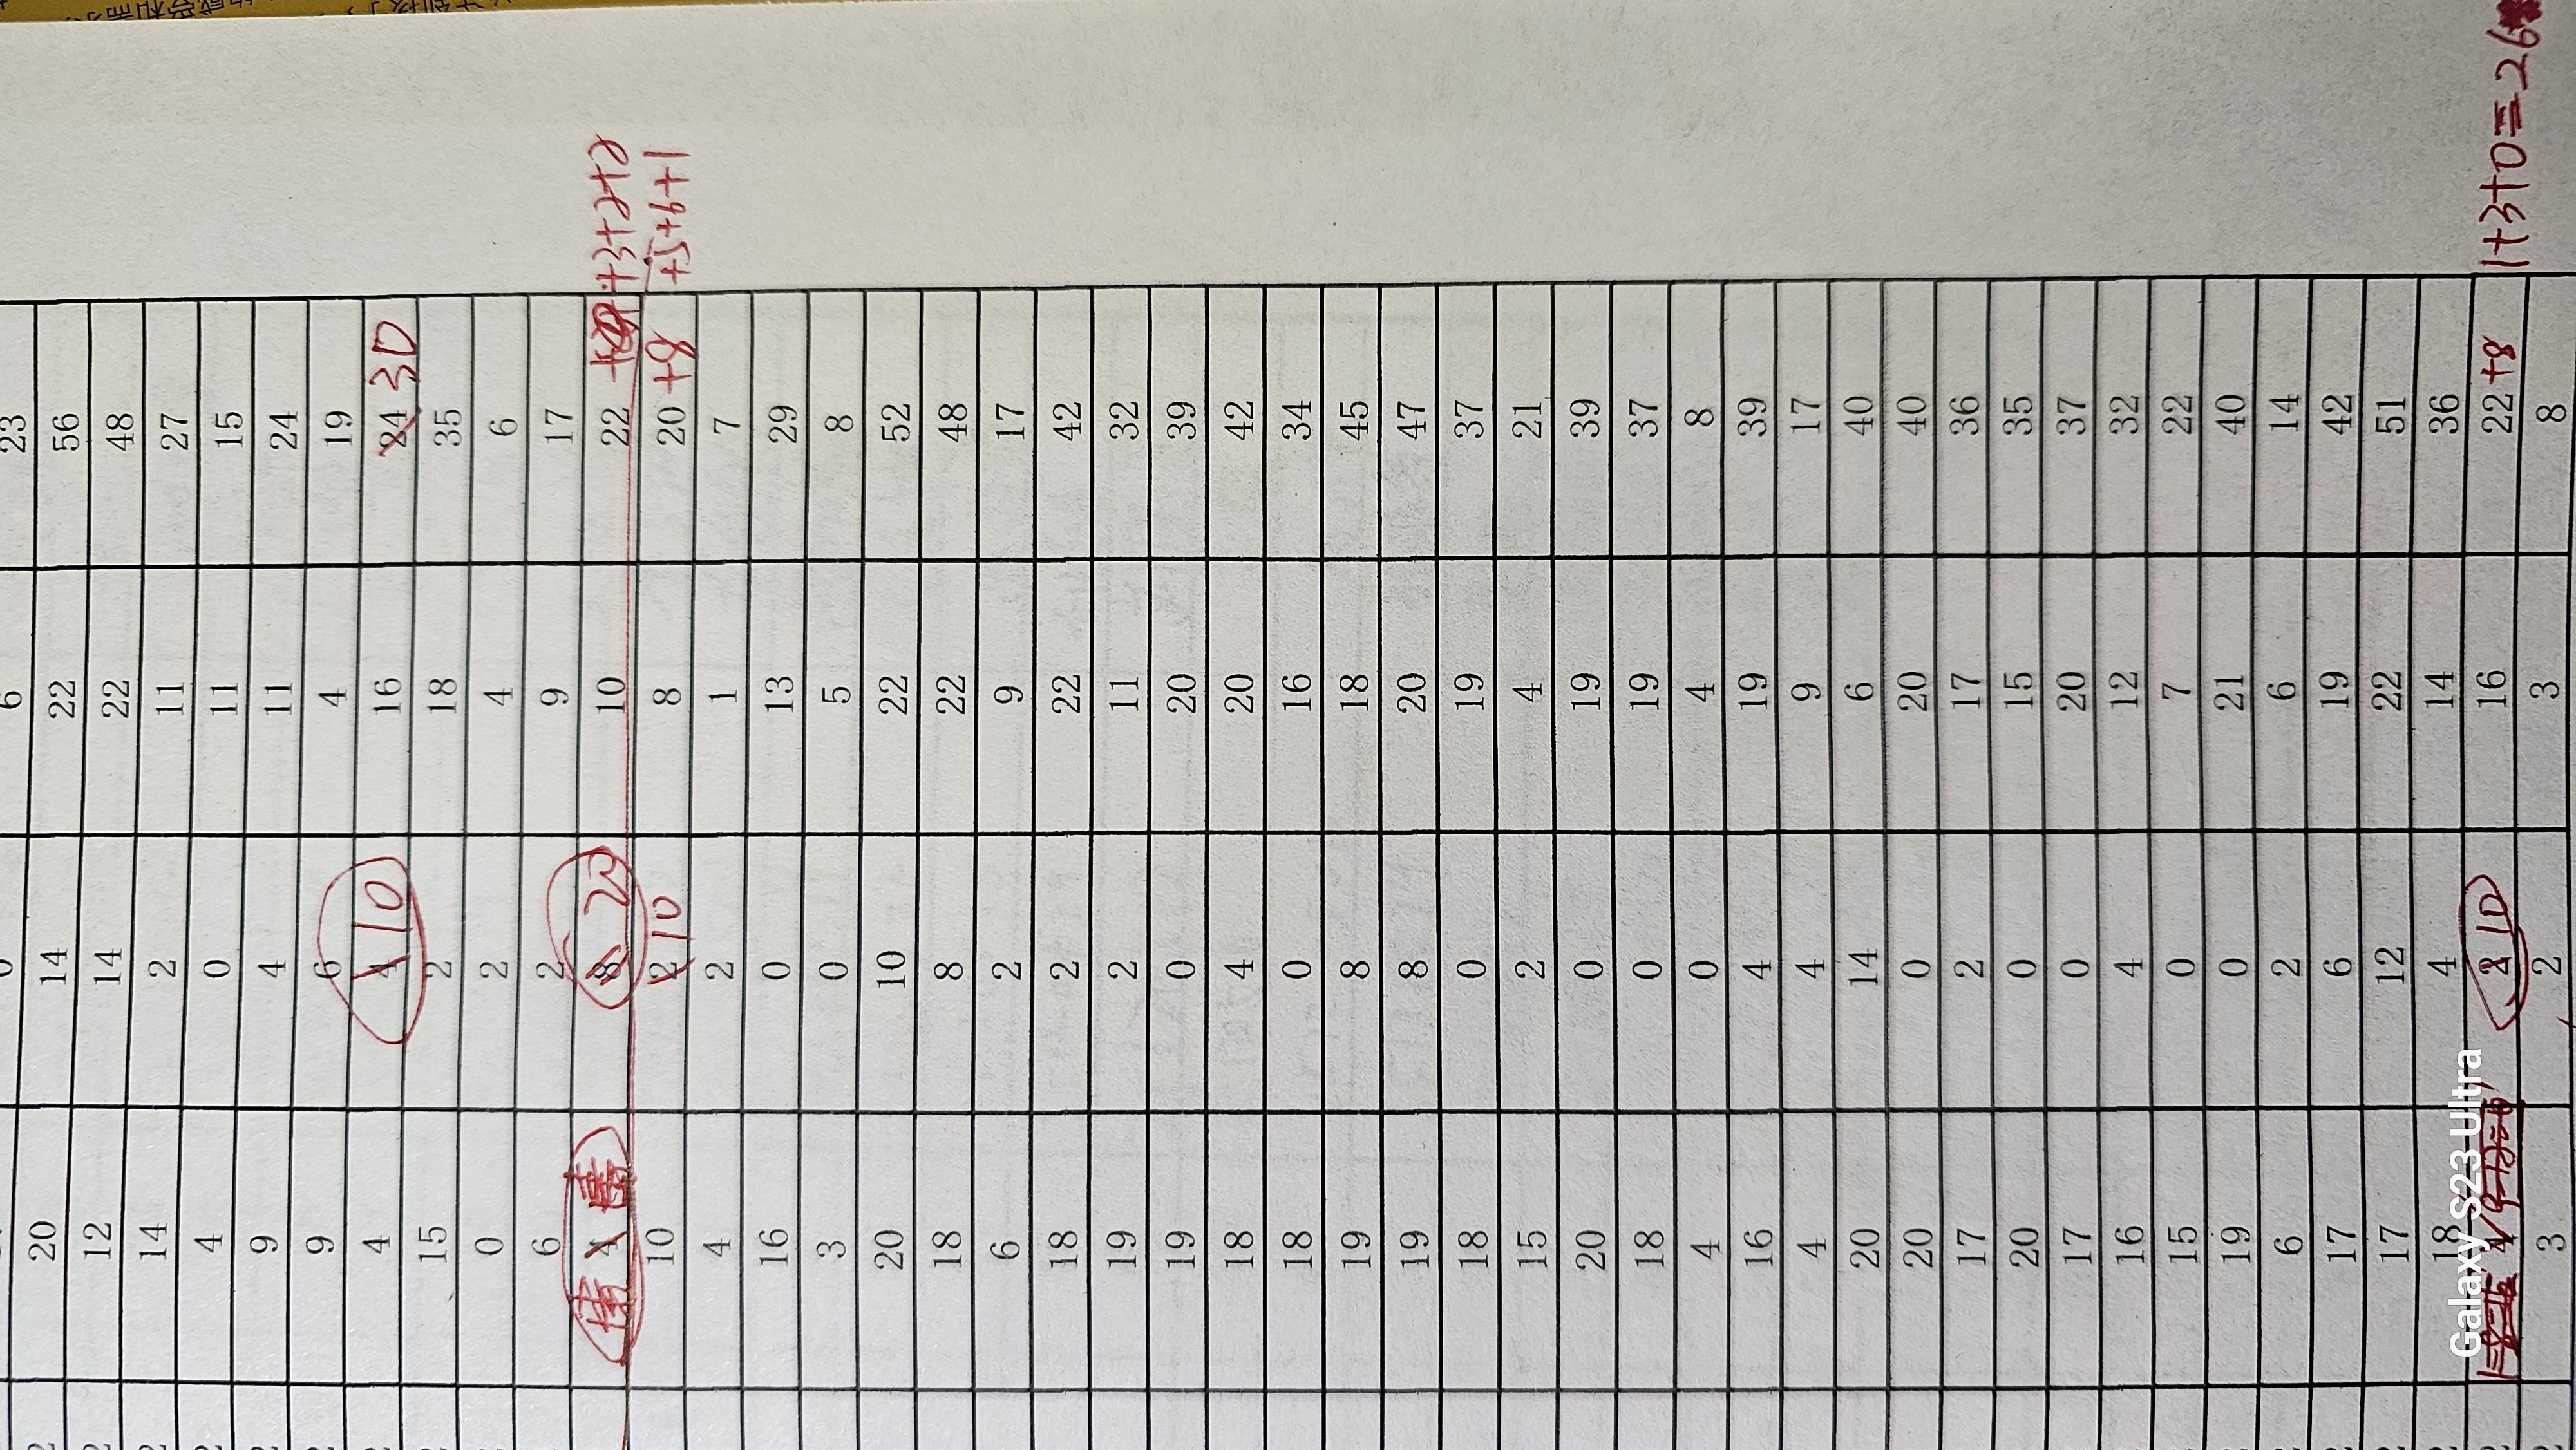 6 23
20 14 22 56
12 14 22 48
14 2 11 27
4 0 11 15
9 4 11 24
9 6 4 19
4 4 10 16 24 30
15 2 18 35
0 2 4 6
6 2 9 17
4 8 20 10 22 +3+2+2
10 2 10 8 20 +8 +5+9+1
4 2 1 7
16 0 13 29
3 0 5 8
20 10 22 52
18 8 22 48
6 2 9 17
18 2 22 42
19 2 11 32
19 0 20 39
18 4 20 42
18 0 16 34
19 8 18 45
19 8 20 47
18 0 19 37
15 2 4 21
20 0 19 39
18 0 19 37
4 0 4 8
16 4 19 39
4 4 9 17
20 14 6 40
20 0 20 40
17 2 17 36
20 0 15 35
17 0 20 37
16 4 12 32
15 0 7 22
19 0 21 40
6 2 6 14
17 6 19 42
17 12 22 51
18 4 14 36
2 10 16 22 +8 1+3+0=26
3 2 3 8
Galaxy S23 Ultra